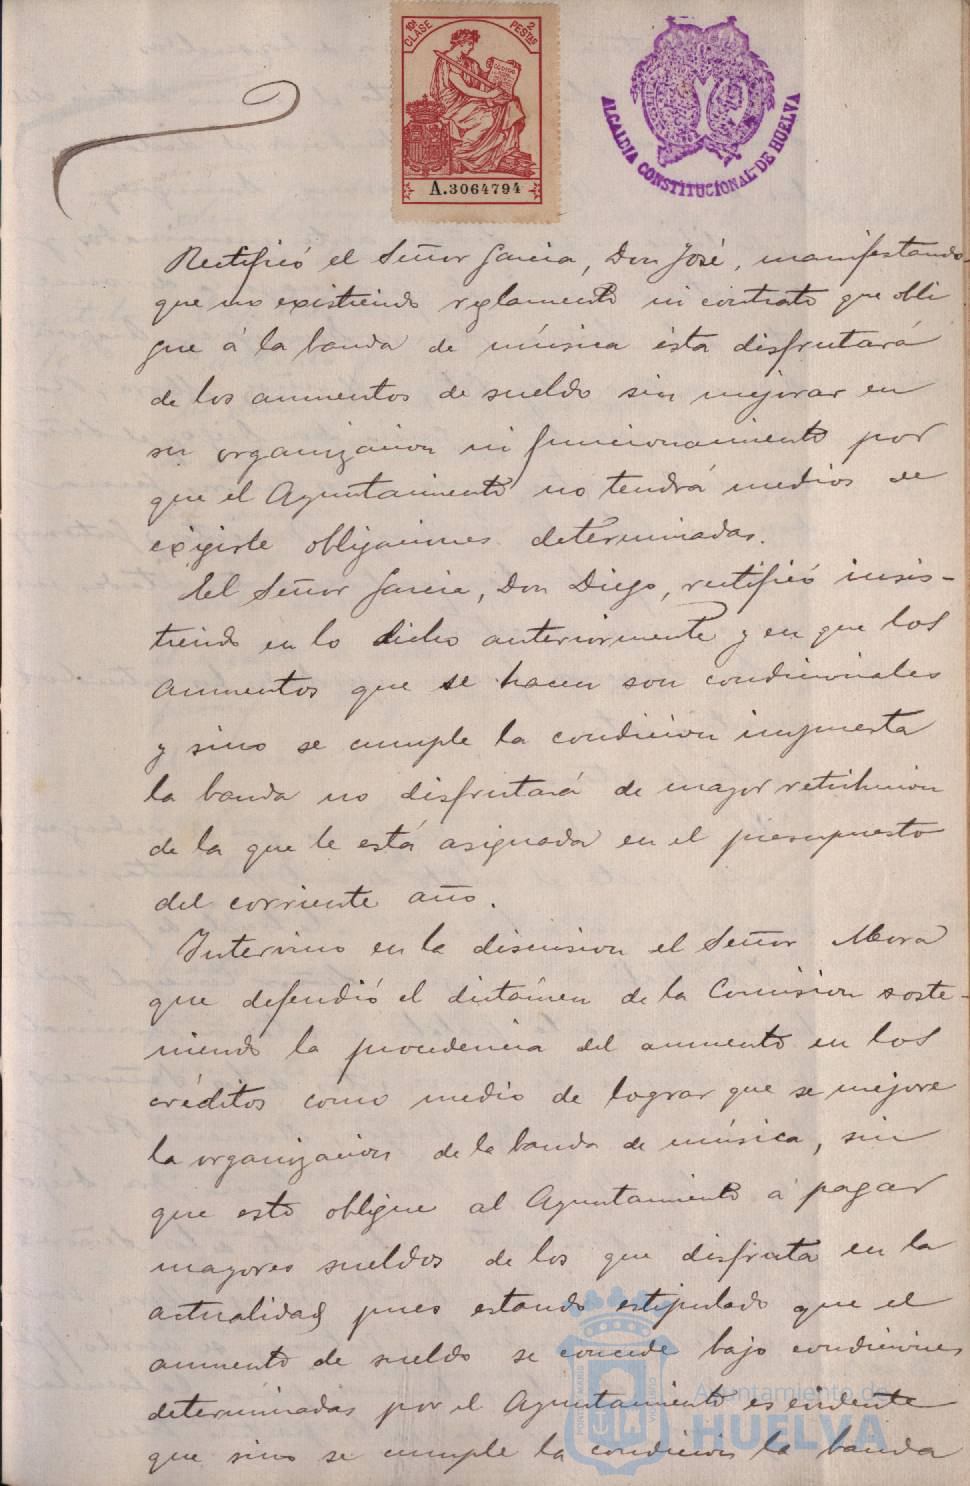 10ª CLASE
2 PESTAS
A.3064794
ALCALDIA CONSTITUCIONAL DE HUELVA
Rectificó el Señor Garcia, Don José, manifestando
que no existiendo reglamento ni contrato que obli
gue á la banda de música ésta disfrutará
de los aumentos de sueldo sin mejorar en
su organizacion ni funcionamiento por
que el Ayuntamiento no tendrá medios de
exigirle obligaciones determinadas.
El Señor Garcia, Don Diego, rectificó insis-
tiendo en lo dicho anteriormente y en que los
aumentos que se hacen son condicionales
y sino se cumple la condicion impuesta
la banda no disfrutará de mayor retribucion
de la que le está asignada en el presupuesto
del corriente año.
Intervino en la discusion el Señor Mora
que defendió el dictámen de la Comision soste-
niendo la procedencia del aumento en los
créditos como medio de lograr que se mejore
la organizacion de la banda de música, sin
que esto obligue al Ayuntamiento á pagar
mayores sueldos de los que disfruta en la
actualidad pues estando estipulado que el
aumento de sueldo se concede bajo condiciones
determinadas por el Ayuntamiento es evidente
que sino se cumple la condicion la banda
Ayuntamiento de
HUELVA